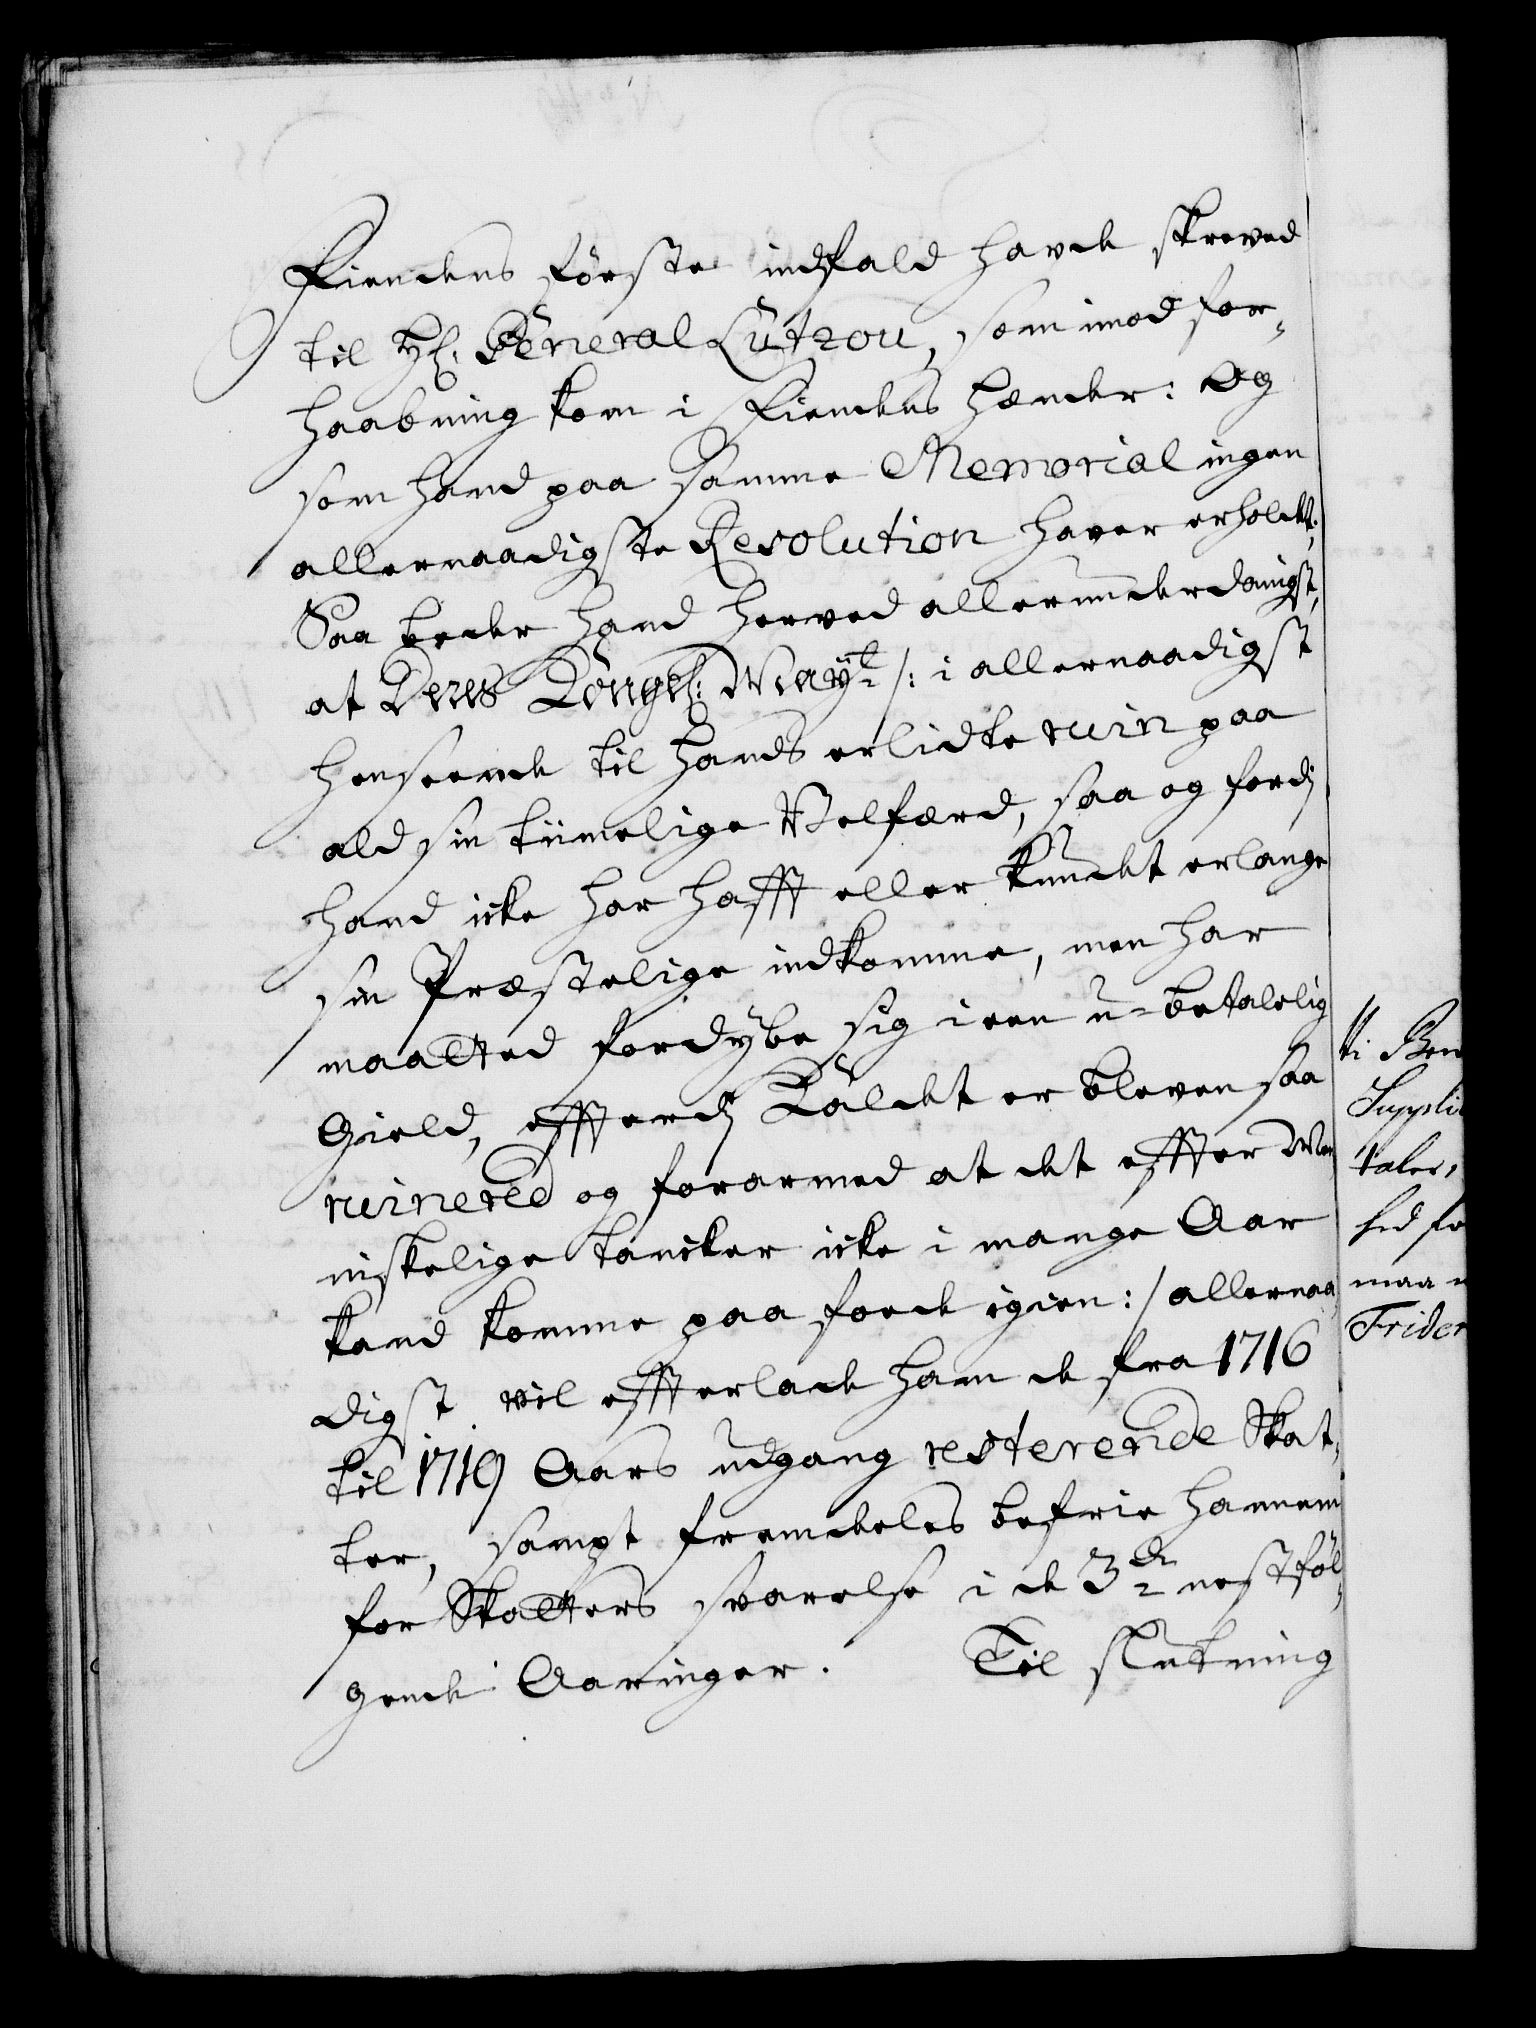 Fiendens förste indfald havde skreved
til Hr: General Lützou, som imod for-
haabning kom i Fiendens hænder: Og
som hand paa samme Memorial ingen
allernaadigste Resolution haver erholdt;
Saa beder hand herved allerunderdanigst,
at Deres Köngel: May:tt /: i allernaadigst
henseende til hands erlidte ruin paa
ald sin tiimelige Velfærd, saa og fordj
hand icke har hafft eller kundet erlange
sin Præstelige indkomme, men har
maatted fordÿbe sig i een u-betalelig
Gield, efftterdj Kaldet er bleven saa
ruinered og forarmed at det effter Men
niskelige tancker icke i mange Aar
kand komme paa foede igien :/ allernaa
digst vil effterlade ham de fra 1716
til 1719 Aars udgang resterende Skat-
ter, sampt fremdeles befrie hannem
for Skatters svarelse i de 3de nestföl-
gende Aaringer. Til slutning
Supplic
taler,
hed fo
maa
Frider